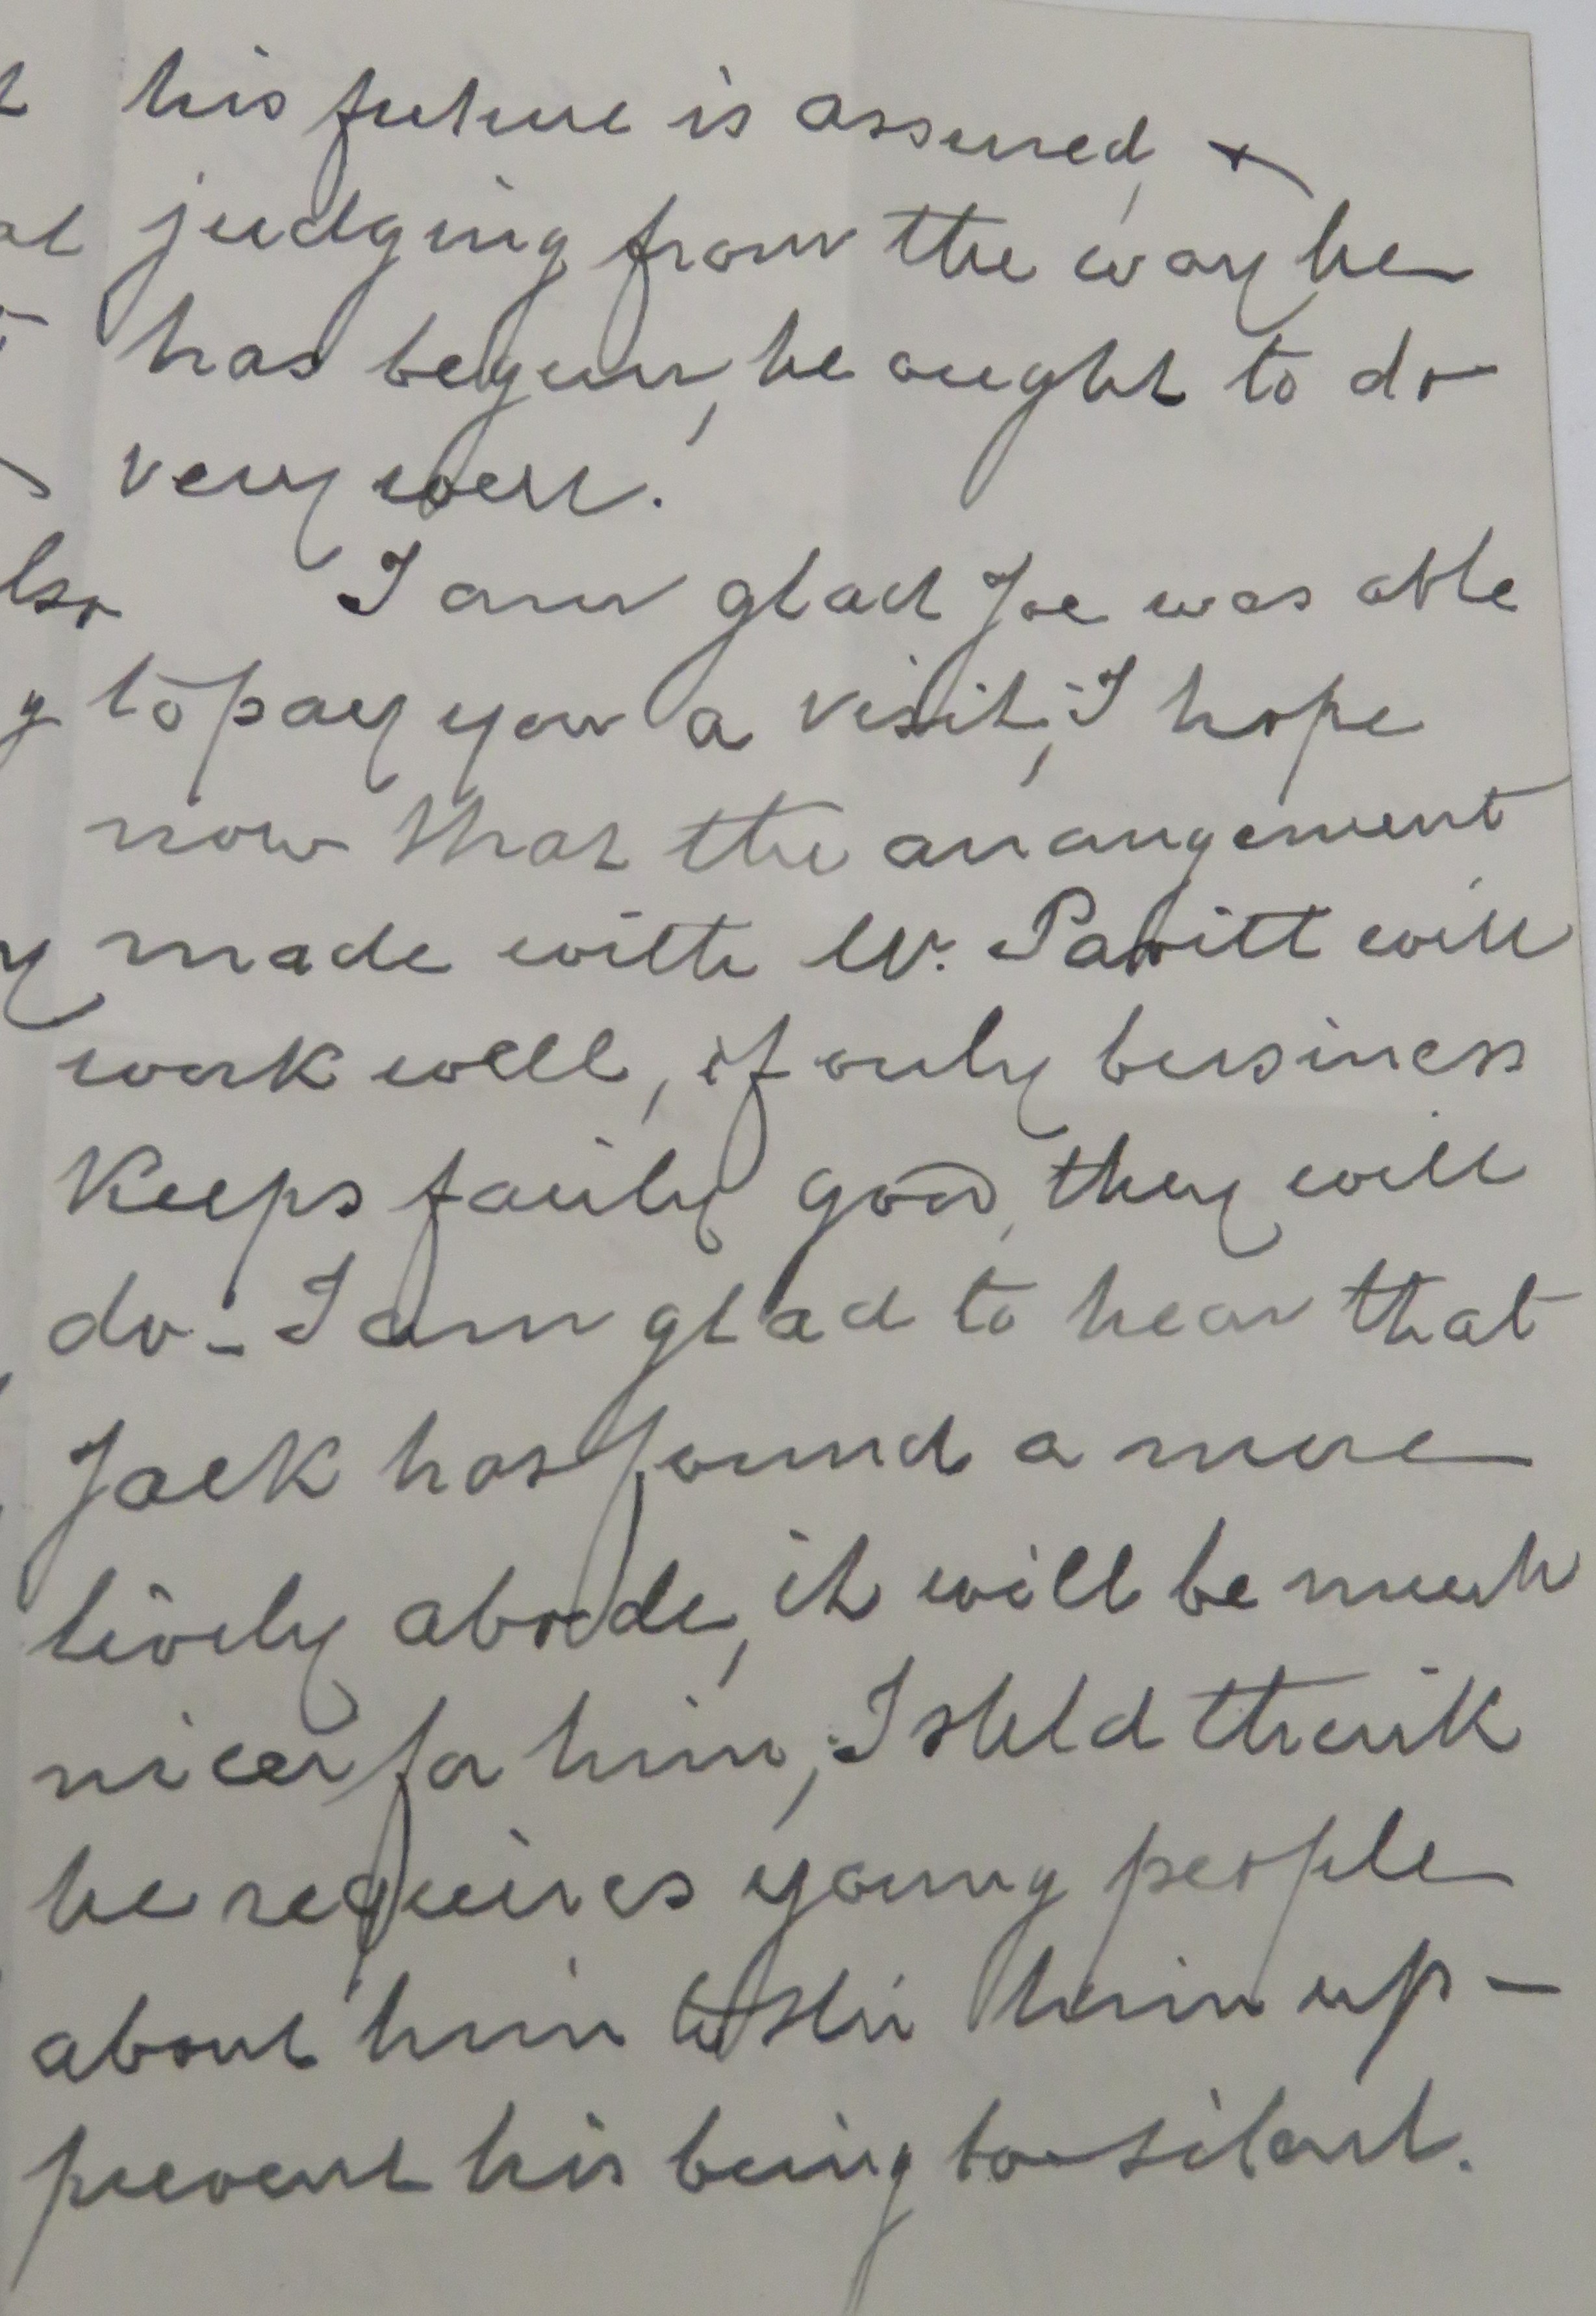 his future is assured, &
judging from the way he
has begun, he ought to do
very well.
I am glad Joe was able
to pay you a visit; I hope
now that the arrangement
made with W. Pavitt will
work well, if only business
Keeps fairly good, they will
do - I am glad to hear that
Jack has found a more
lively abode, it will be much
nicer for him; I shld think
he requires young people
about him to stir him up -
prevent his being too silent.